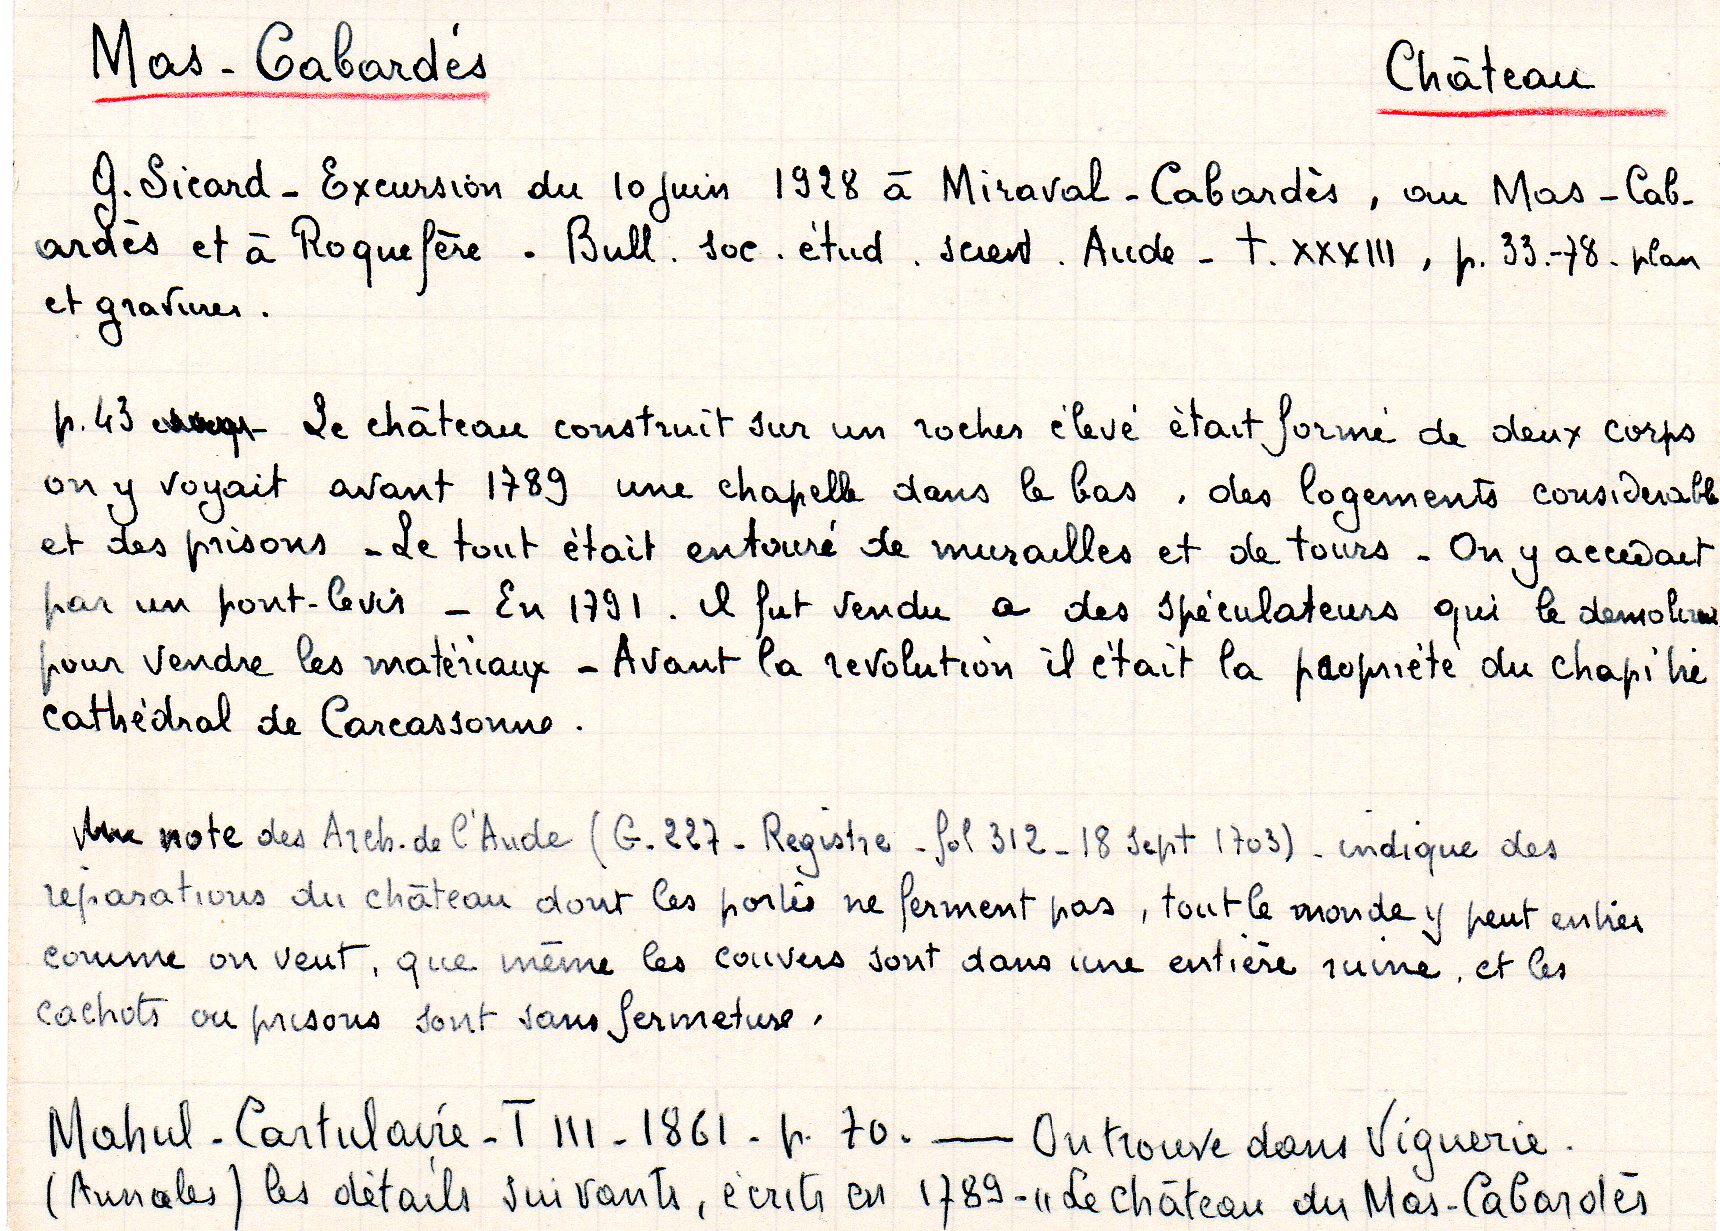 Mas-Cabardés
Château
G. Sicard - Excursion du 10 juin 1928 à Miraval-Cabardès, au Mas-Cab-
ardès et à Roquefère. Bull. soc. étud. scient. Aude - T. XXXIII, p. 33.-78. plan
et gravures.
p. 43 - Le château construit sur un rocher élevé était formé de deux corps
on y voyait avant 1789 une chapelle dans le bas, des logements considerable
et des prisons - Le tout était entouré de murailles et de tours - On y accedait
par un pont-levis - En 1791. il fut vendu a des spéculateurs qui le demolirent
pour vendre les matériaux - Avant la revolution il était la propriété du chapitre
cathédral de Carcassonne.
Une note des Arch. de l'Aude (G. 227 - Registre - fol 312 - 18 Sept 1703) - indique des
réparations du château dont les portes ne ferment pas, tout le monde y peut entrer
comme on veut, que même les couvers sont dans une entière ruine, et les
cachots ou prisons sont sans fermeture.
Mahul - Cartulaire - T III - 1861 - p. 70. — On trouve dans Viguerie.
(Annales) les détails suivants, écrits en 1789 - "Le château du Mas-Cabardès